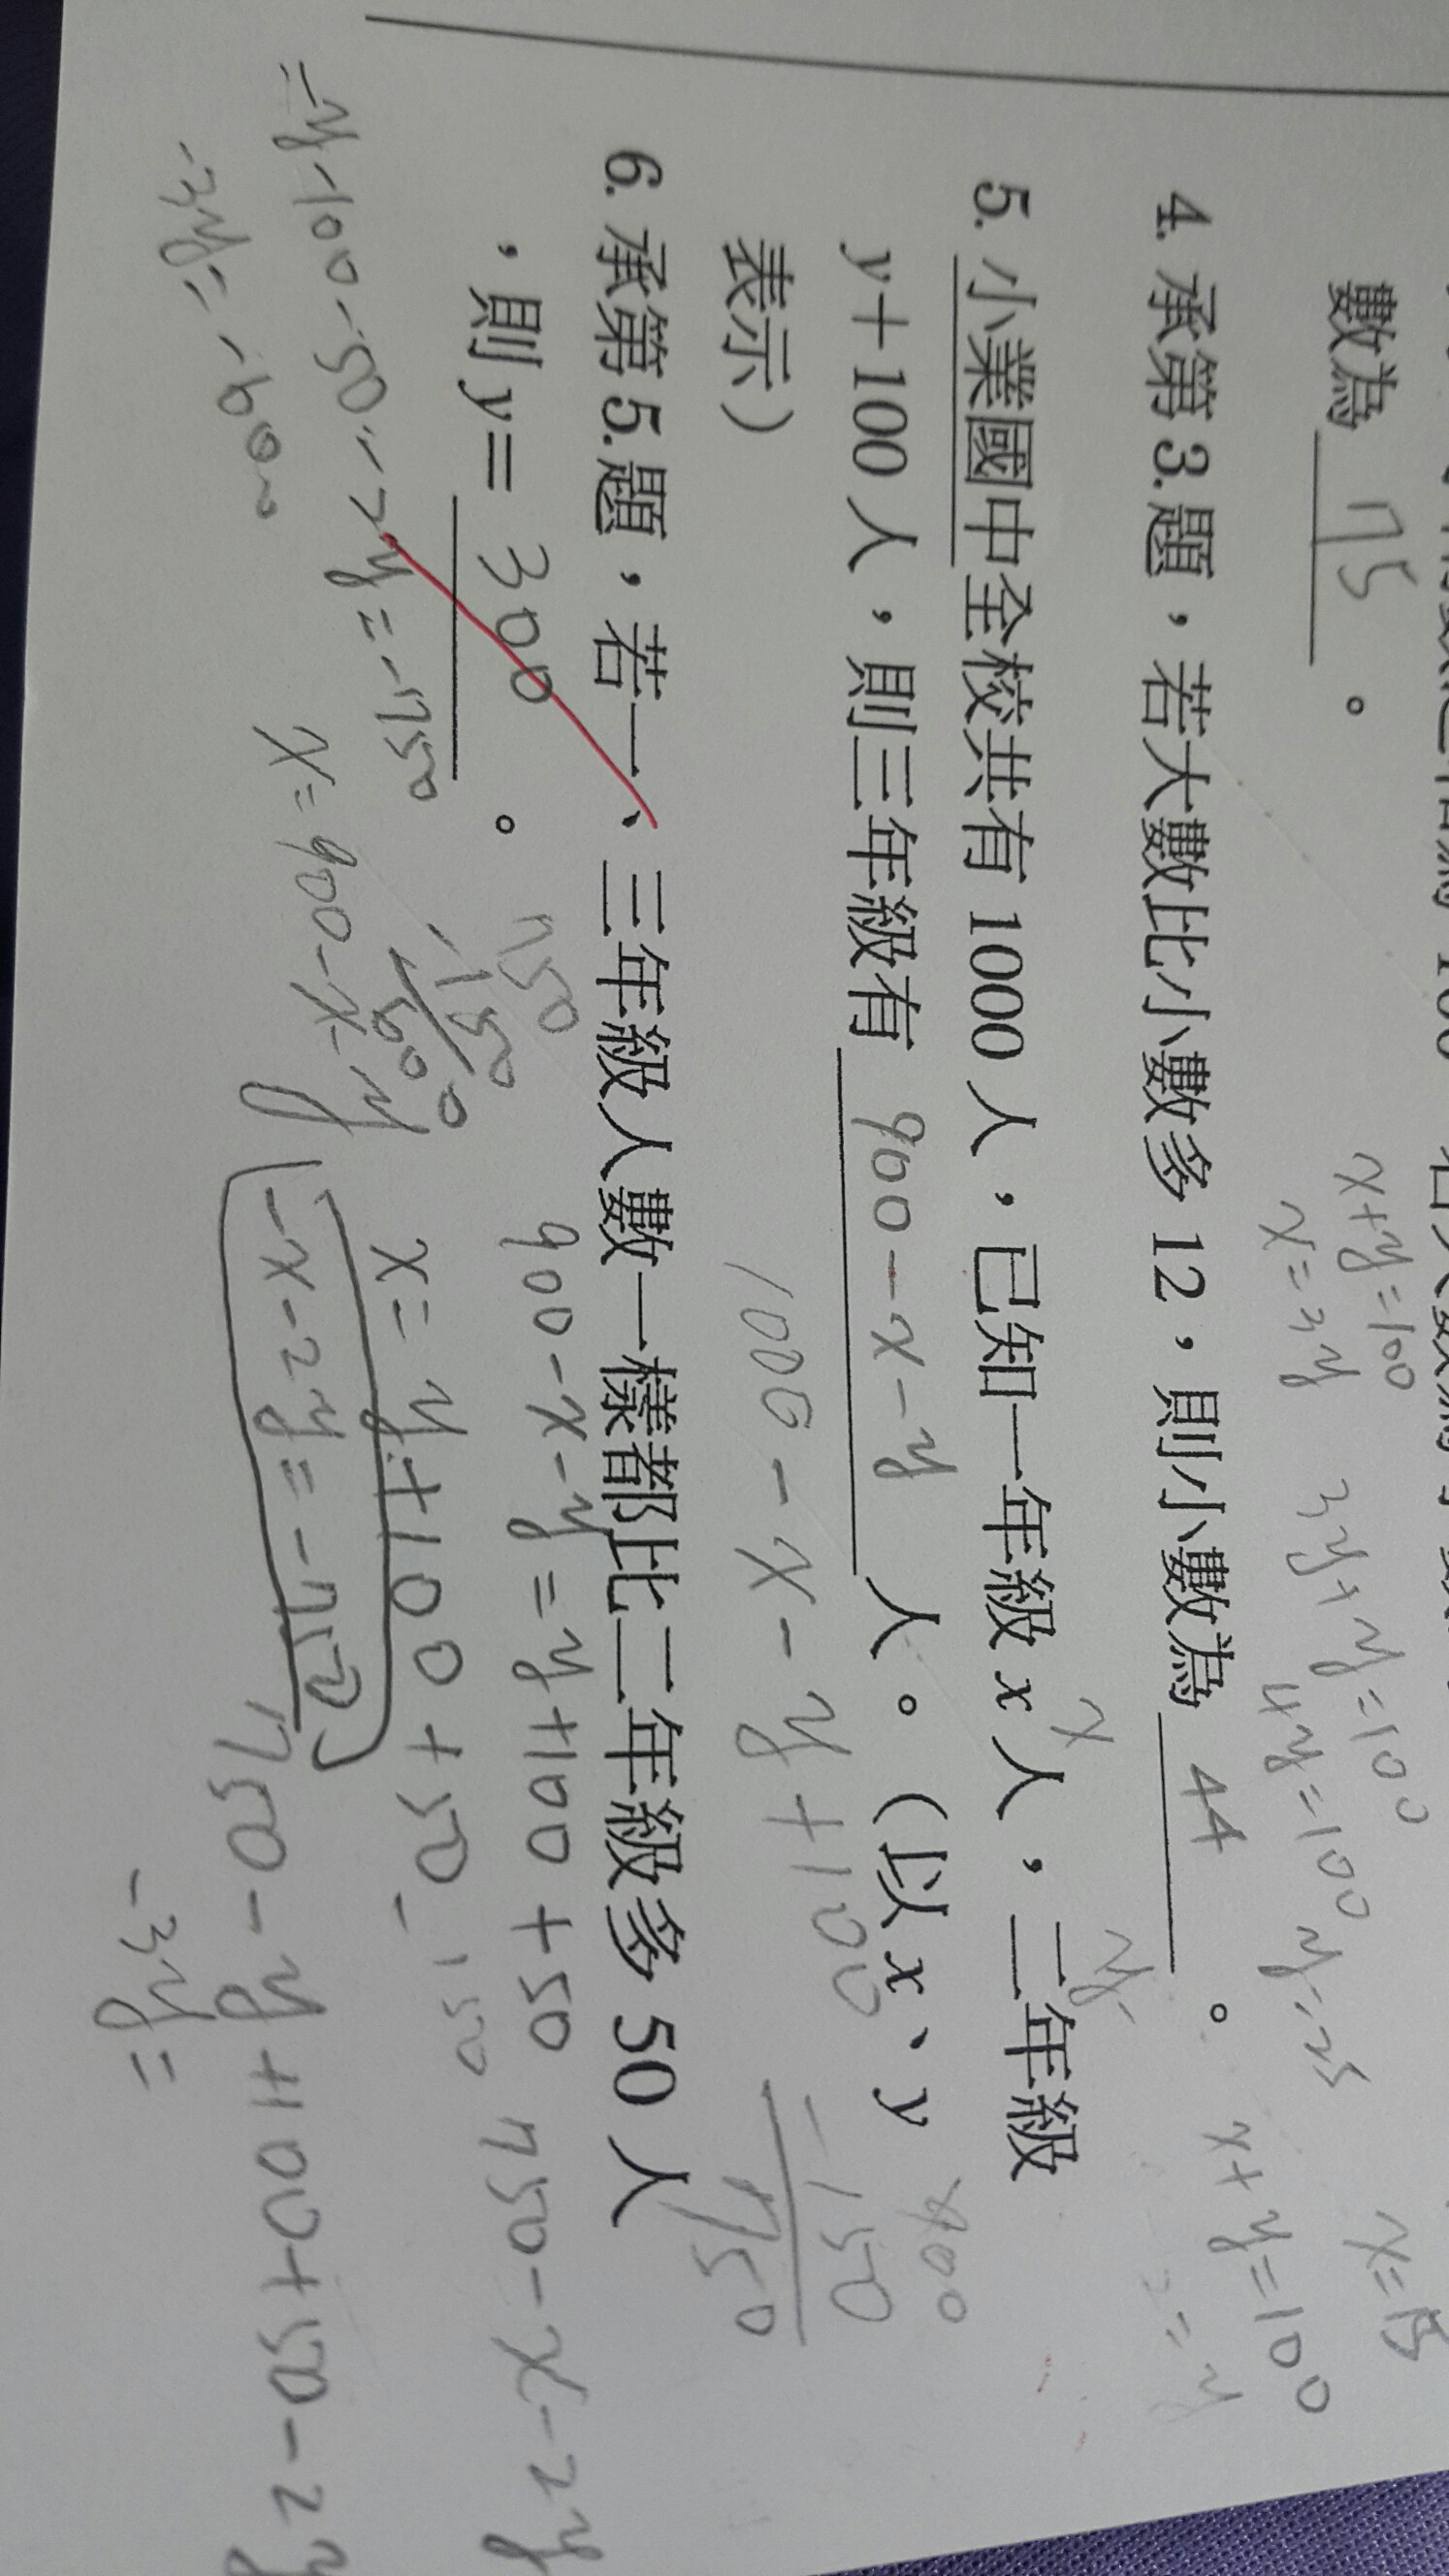 數為 75 。
x+y=100
x=3y
3y+y=100
4y=100
y=25
x=75
4. 承第 3. 題，若大數比小數多 12，則小數為 44 。
x+y=100
5. 小業國中全校共有 1000 人，已知一年級 x 人，二年級
x
y
y＋100 人，則三年級有 900-x-y 人。（以 x、y
表示）
1000-x-y+100
900
150
750
6. 承第 5. 題，若一、三年級人數一樣都比二年級多 50 人
，則 y＝ 300 。
900-x-y=y+100+50
750-x-2y
x=y+100+50
-x-2y=-750
x=900-x-y
-y-100-50-2y=-750
-3y=-900
750-y+100+50-2y
-3y=